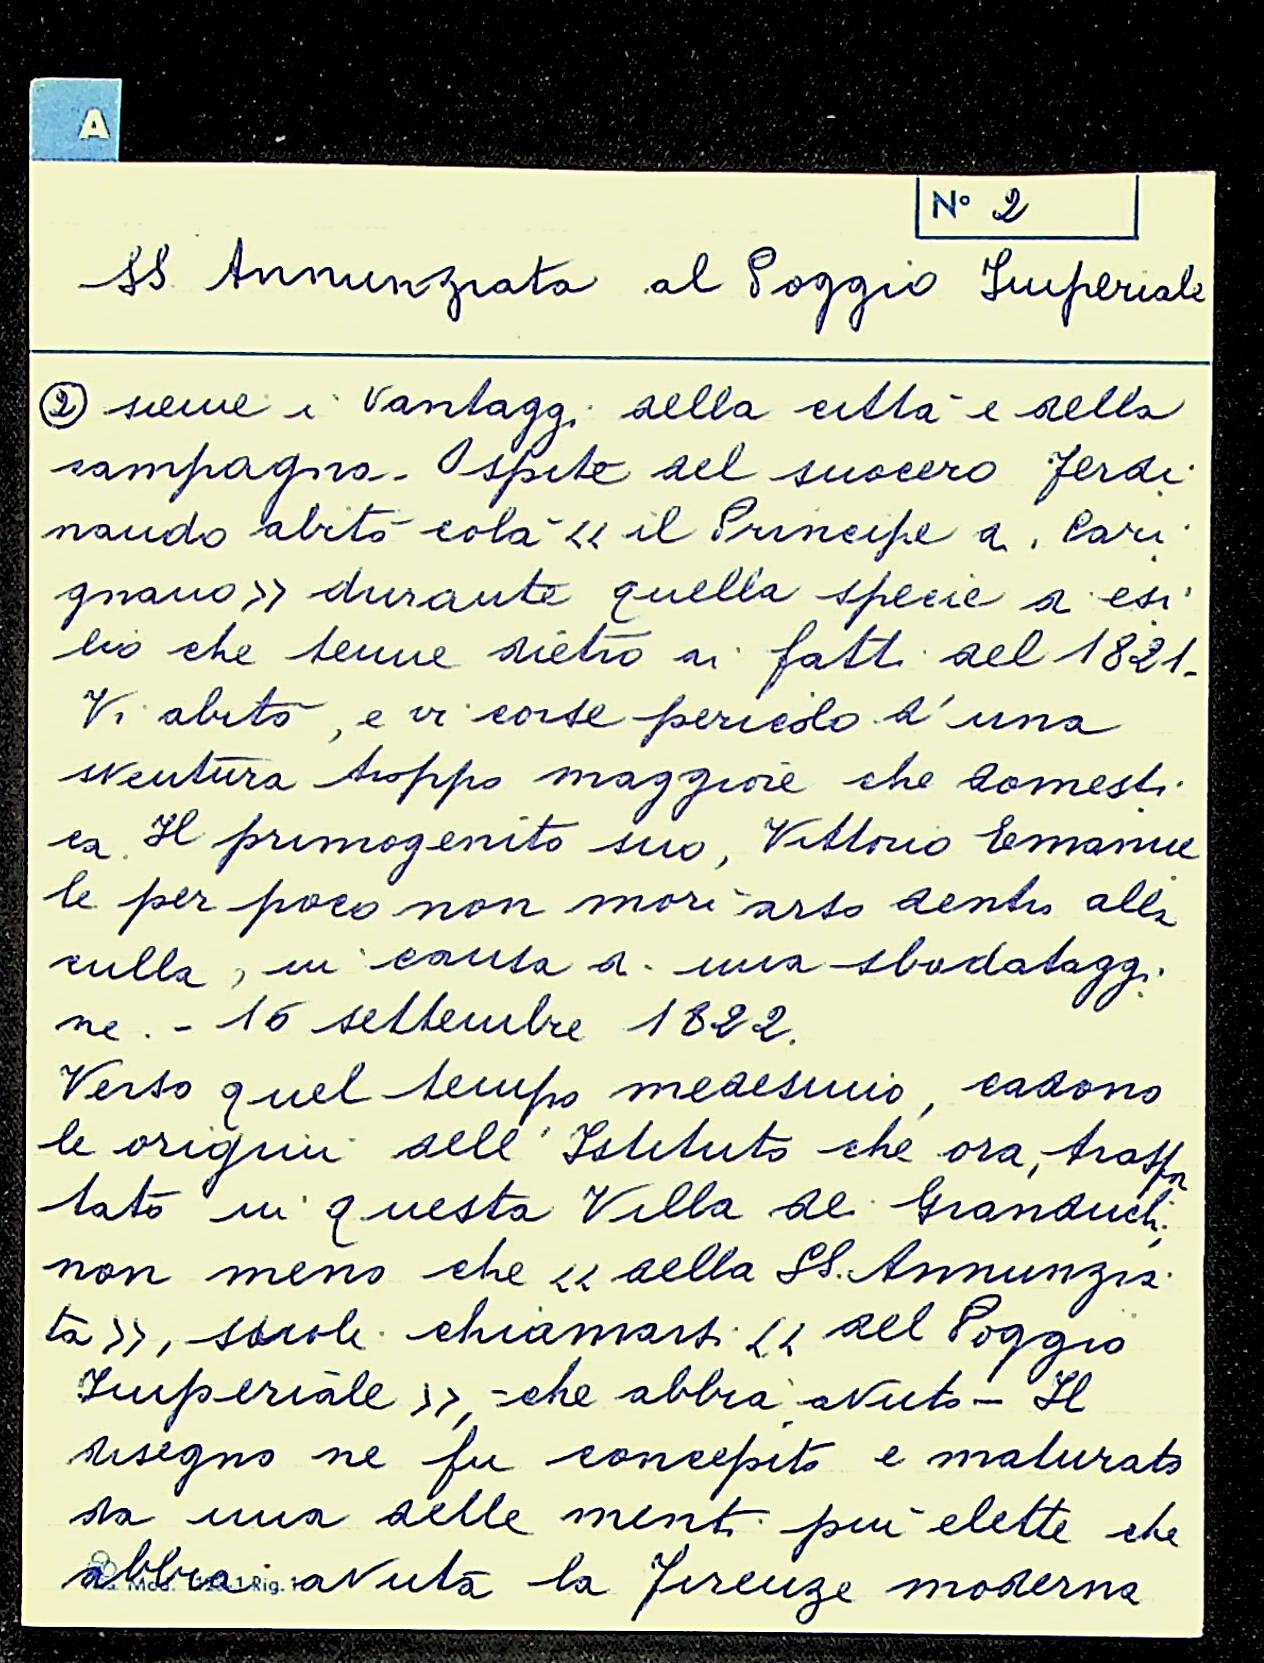 A
N° 2
SS Annunziata al Poggio Imperiale
② sieme i vantaggi della città e della
campagna. Ospite del suocero Ferdi
nando abitò colà « il Principe di Cari
gnano » durante quella specie di esi
lio che tenne dietro ai fatti del 1821.
Vi abitò, e vi corse pericolo d'una
sventura troppo maggiore che domesti
ca. Il primogenito suo, Vittorio Emanue
le per poco non morì arso dentro alla
culla, in causa di una sbadataggi
ne. - 16 settembre 1822.
Verso quel tempo medesimo, cadono
le origini dell'Istituto che ora,
tato in questa Villa dei Granduchi,
non meno che « della SS. Annunzia
ta », suole chiamarsi « del Poggio
Imperiale », - che abbia avuto - Il
disegno ne fu concepito e maturato
da una delle menti più elette che
abbia avuta la Firenze moderna